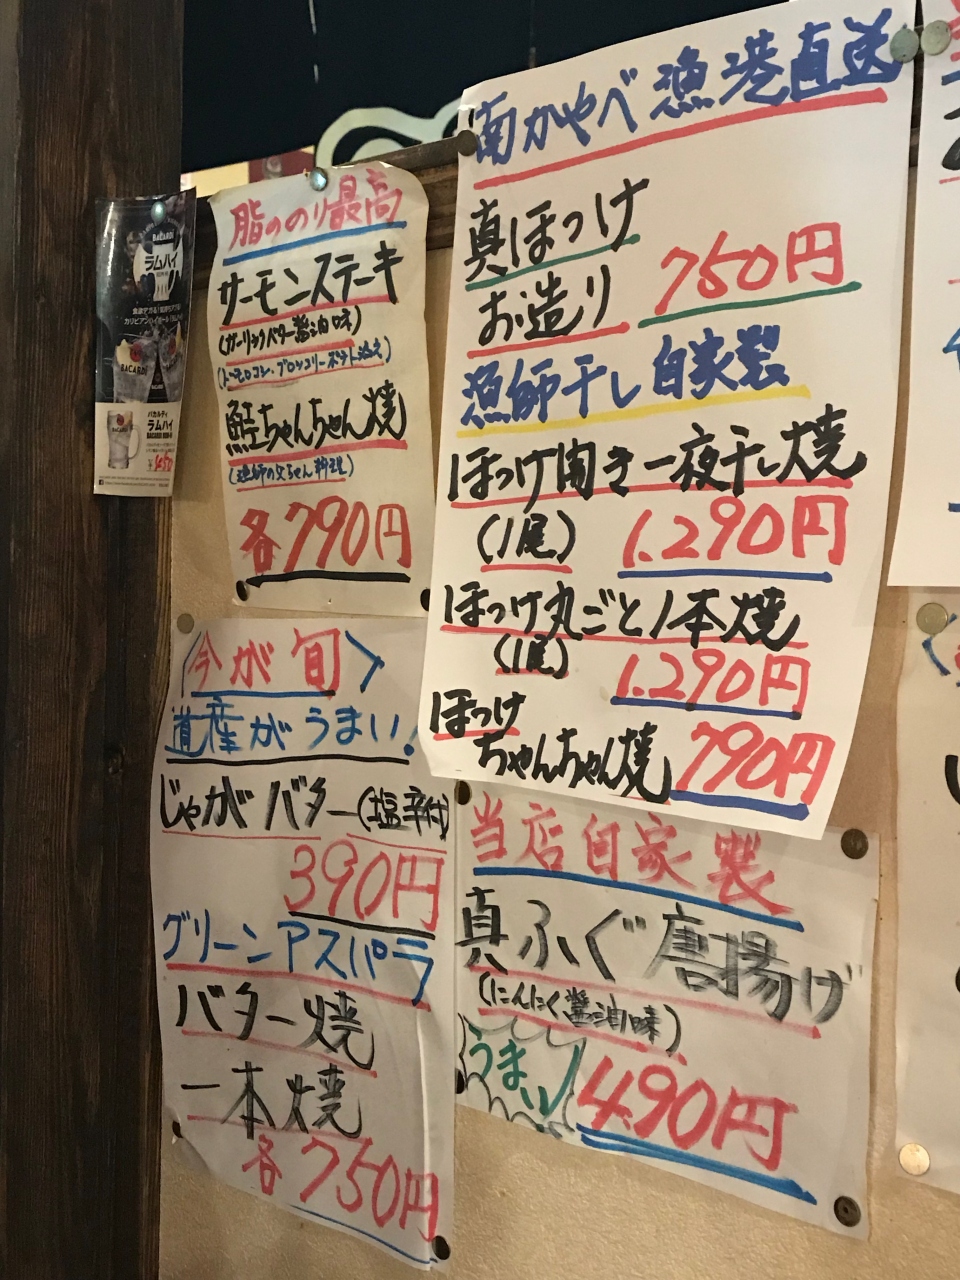 BACARDI
ラムハイ
カリビアンハイボール
BACARDI
バカルディ
ラムハイ
¥450
脂ののり最高
サーモンステーキ
(ガーリックバター醤油味)
(トーモロコシ・ブロッコリーポテト添え)
鮭ちゃんちゃん焼
(漁師の父ちゃん料理)
各790円
南かやべ漁港直送
真ほっけ
お造り 750円
漁師干し自家製
ほっけ開き一夜干し焼
(1尾) 1.290円
ほっけ丸ごと1本焼
(1尾) 1.290円
ほっけ
ちゃんちゃん焼 790円
〈今が旬〉
道産がうまい!
じゃがバター(塩辛付)
390円
グリーンアスパラ
バター焼
一本焼
各750円
当店自家製
真ふぐ唐揚げ
(にんにく醤油味)
うまいッ 490円